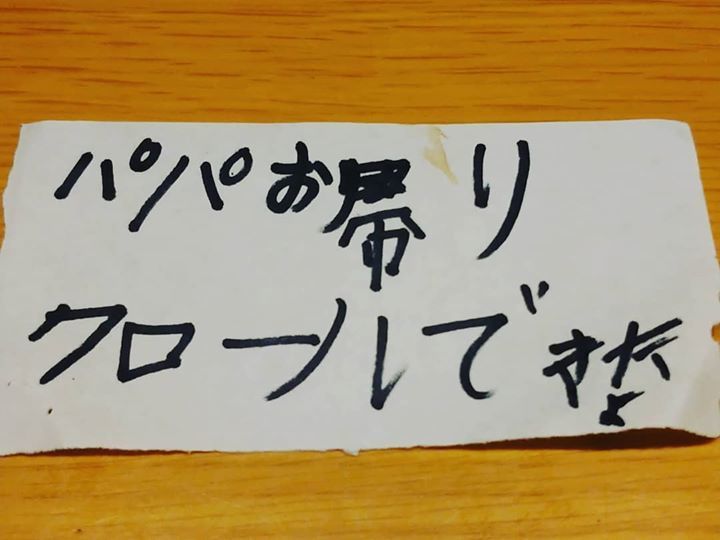 パパお帰り
クロールできたよ